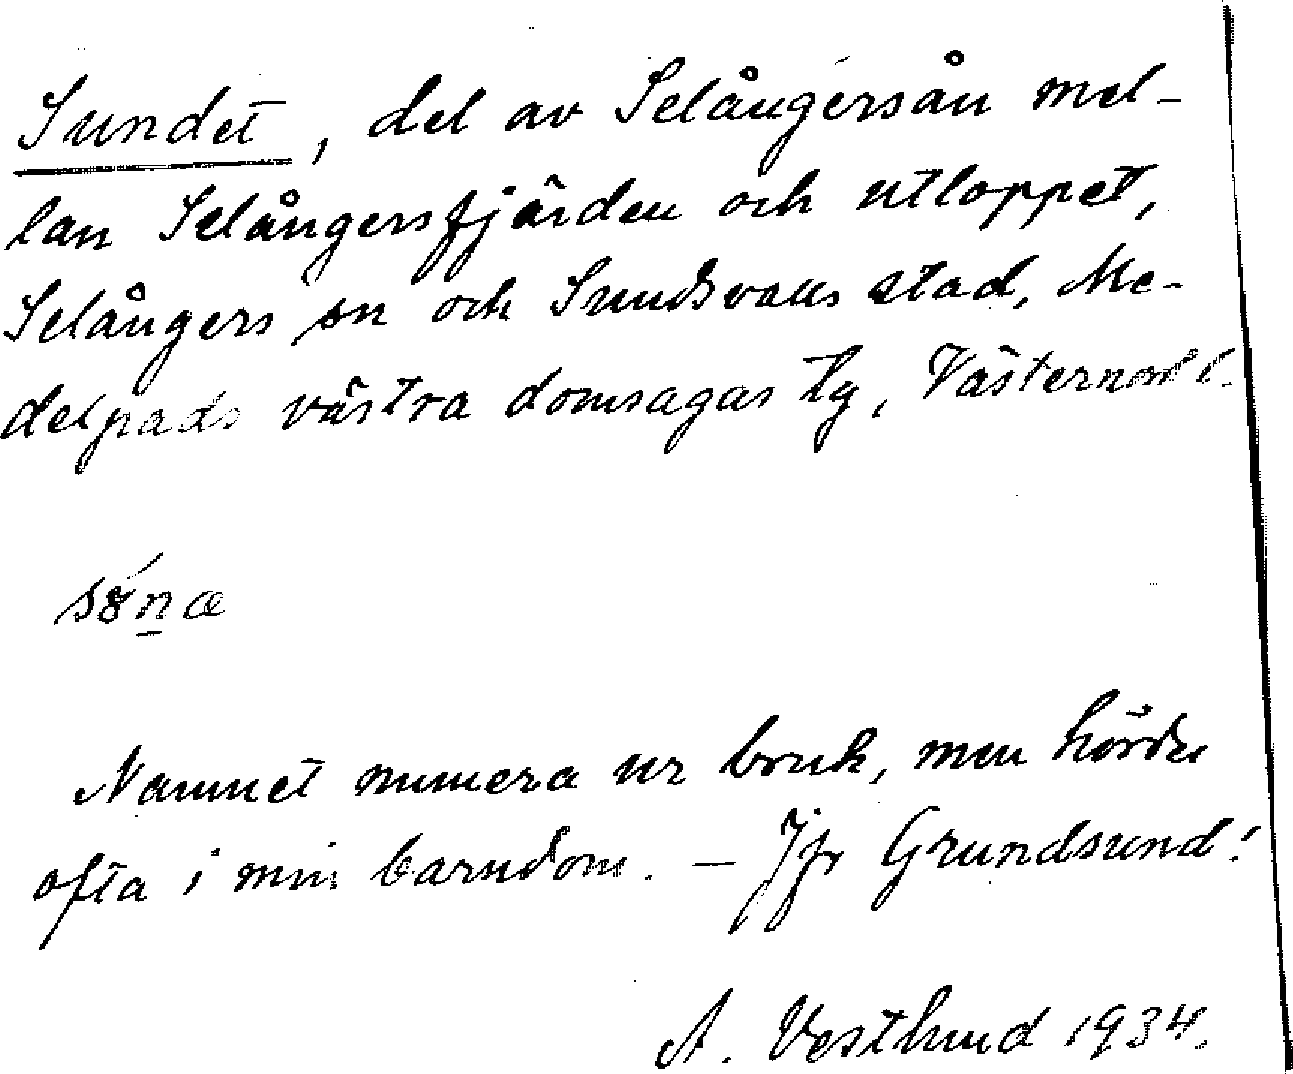 Sundet, del av Selångersån mel-
lan Selångersfjärden och utloppet,
Selångers sn och Sundsvalls stad, Me-
delpads västra domsagas tg, Västernorrl.
sȣ́n̲æ
Namnet numera ur bruk, men hördes
ofta i min barndom. – Jfr Grundsund!
A. Vestlund 1934.